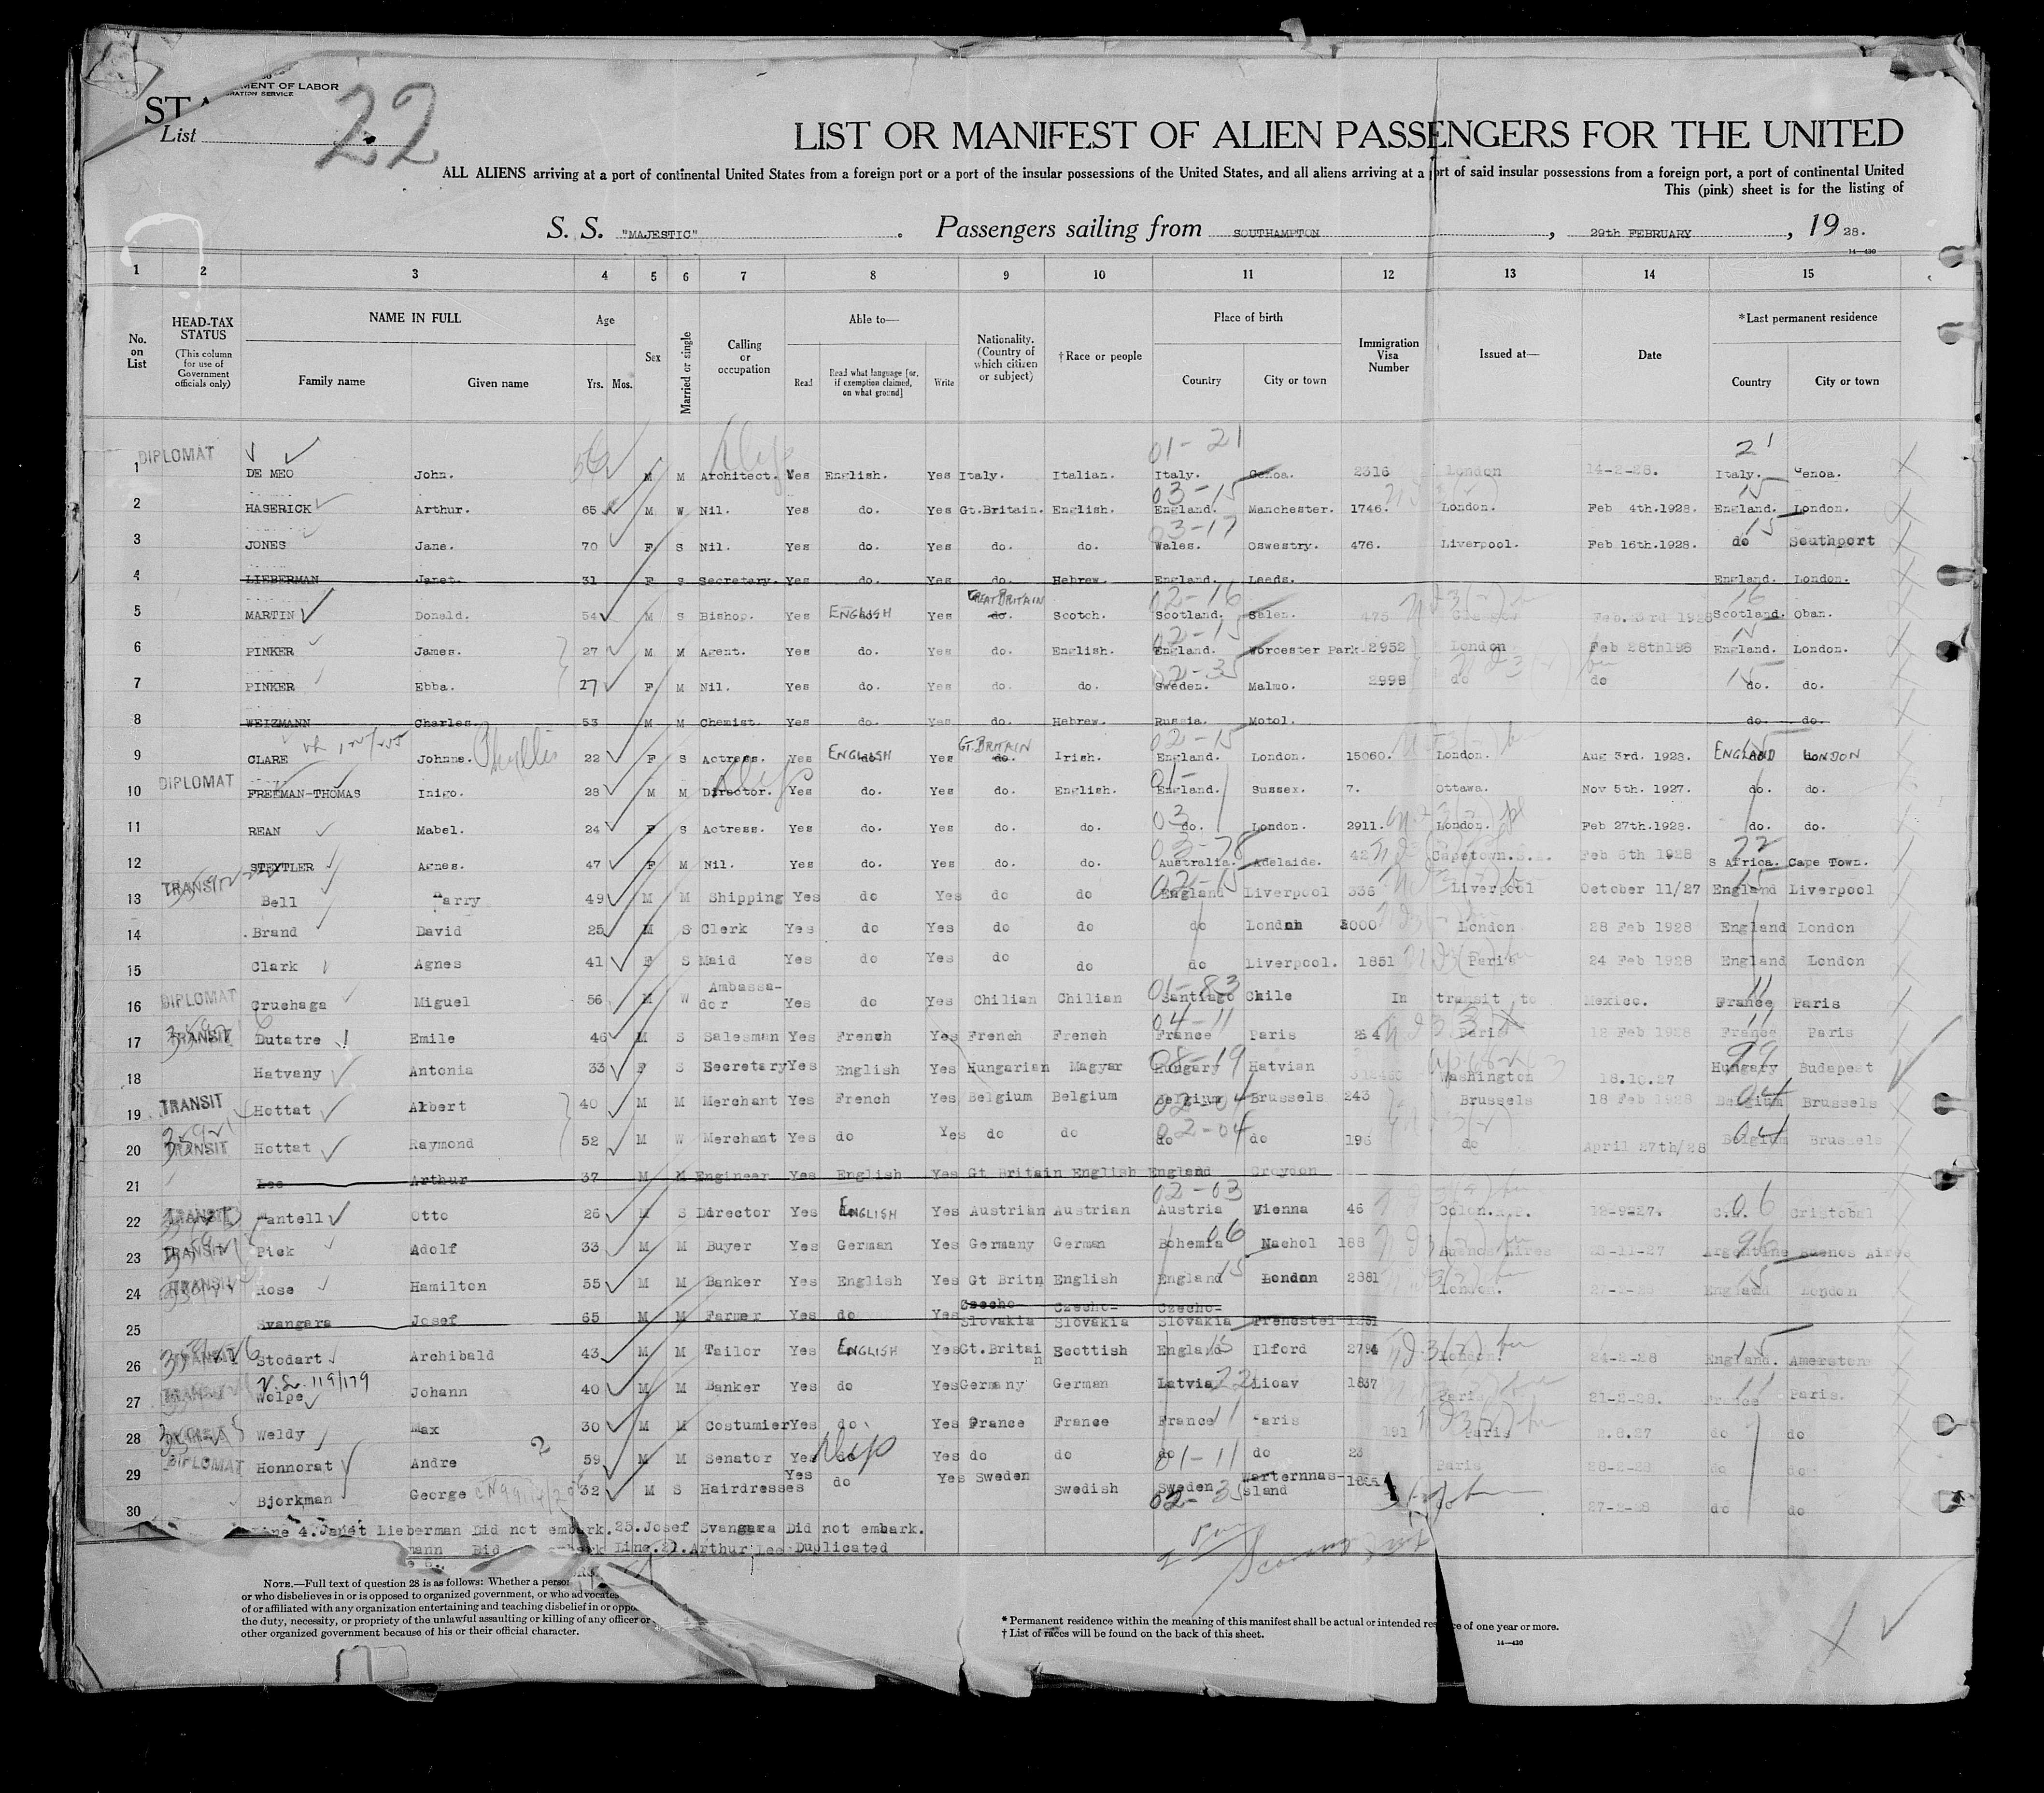 MENT OF LABOR
RATION SERVICE
STA
List 22
LIST OR MANIFEST OF ALIEN PASSENGERS FOR THE UNITED
ALL ALIENS arriving at a port of continental United States from a foreign port or a port of the insular possessions of the United States, and all aliens arriving at a port of said insular possessions from a foreign port, a port of continental United
This (pink) sheet is for the listing of
S. S. "MAJESTIC" . Passengers sailing from SOUTHAMPTON , 29th FEBRUARY , 19 28.
14—430
1 2 3 4 5 6 7 8 9 10 11 12 13 14 15
No. on List HEAD-TAX STATUS (This column for use of Government officials only) NAME IN FULL Family name Given name Age Yrs. Mos. Sex Married or single Calling or occupation Able to— Read Read what language [or, if exemption claimed, on what ground] Write Nationality. (Country of which citizen or subject) † Race or people Place of birth Country City or town Immigration Visa Number Issued at— Date * Last permanent residence Country City or town
01-21 21
1 DIPLOMAT DE MEO John. 56 M M Architect. Yes English. Yes Italy. Italian. Italy. Genoa. 2316 London 14-2-28. Italy. Genoa.
03-15 15
2 HASERICK Arthur. 65 M W Nil. Yes do. Yes Gt.Britain. English. England. Manchester. 1746. London. Feb 4th.1928. England. London.
03-17 15
3 JONES Jane. 70 F S Nil. Yes do. Yes do. do. Wales. Oswestry. 476. Liverpool. Feb 16th.1928. do Southport
4 LIEBERMAN Janet. 31 F S Secretary. Yes do. Yes do. Hebrew. England. Leeds. England. London.
02-16 16
5 MARTIN Donald. 54 M S Bishop. Yes ENGLISH Yes do. GREAT BRITAIN Scotch. Scotland. Salen. 475 Feb. 23rd 1928 Scotland. Oban.
02-15 15
6 PINKER James. 27 M M Agent. Yes do. Yes do. English. England. Worcester Park 2952 London Feb 28th198 England. London.
02-35 15
7 PINKER Ebba. 27 F M Nil. Yes do. Yes do. do. Sweden. Malmo. 2998 do do do. do.
8 WEIZMANN Charles. 53 M M Chemist. Yes do. Yes do. Hebrew. Russia. Motol. do do.
02-15
9 CLARE Johnne. Phyllis 22 F S Actress. Yes ENGLISH Yes do. GT. BRITAIN Irish. England. London. 15060. London. Aug 3rd. 1928. ENGLAND LONDON
01-
10 DIPLOMAT FREEMAN-THOMAS Inigo. 28 M M Director. Yes do. Yes do. English. England. Sussex. 7. Ottawa. Nov 5th. 1927. do. do.
03
11 REAN Mabel. 24 F S Actress. Yes do. Yes do. do. do. London. 2911. London. Feb 27th.1928. do. do.
03-78 22
12 STEYTLER Agnes. 47 F M Nil. Yes do. Yes do. do. Australia. Adelaide. 42 Capetown.S.A. Feb 6th 1928 S Africa. Cape Town.
02-15 15
13 TRANSIT Bell Harry 49 M M Shipping Yes do Yes do do England Liverpool 336 Liverpool October 11/27 England Liverpool
14 Brand David 25 M S Clerk Yes do Yes do do do London 3000 London 28 Feb 1928 England London
15 Clark Agnes 41 F S Maid Yes do Yes do do do Liverpool. 1851 Paris 24 Feb 1928 England London
01-83 11
16 DIPLOMAT Cruchaga Miguel 56 M W Ambassador Yes do Yes Chilian Chilian Santiago Chile In transit to Mexico. France Paris
04-11 11
17 TRANSIT Dutatre Emile 46 M S Salesman Yes French Yes French French France Paris 254 Paris 12 Feb 1928 France Paris
08-19 99
18 Hatvany Antonia 33 F S Secretary Yes English Yes Hungarian Magyar Hungary Hatvian Washington 18.10.27 Hungary Budapest
02-04 04
19 TRANSIT Hottat Albert 40 M M Merchant Yes French Yes Belgium Belgium Belgium Brussels 243 Brussels 18 Feb 1928 Belgium Brussels
02-04 04
20 TRANSIT Hottat Raymond 52 M W Merchant Yes do Yes do do do do 196 do April 27th/28 Belgium Brussels
21 Lee Arthur 37 M M Engineer Yes English Yes Gt Britain English England Croydon
02-03 06
22 TRANSIT Mantell Otto 26 M S Director Yes ENGLISH Yes Austrian Austrian Austria Vienna 46 Colon.R.P. 12-9-27. Cristobal
06 96
23 TRANSIT Pick Adolf 33 M M Buyer Yes German Yes Germany German Bohemia Nachol 188 Buenos Aires 23-11-27 Argentine Buenos Aires
15 15
24 TRANSIT Rose Hamilton 55 M M Banker Yes English Yes Gt Britn English England London 2881 London. England London
25 Svangara Josef 65 M M Farmer Yes do Yes Czecho Slovakia Czecho- Slovakia Czecho- Slovakia Prenostel
15 15
26 TRANSIT Stodart Archibald 43 M M Tailor Yes ENGLISH Yes Gt.Britain Scottish England Ilford 2794 London. 24-2-28 England.
27 TRANSIT Wolpe Johann 40 M M Banker Yes do Yes Germany German Latvia 22 Lioav 1837 Paris 21-2-28. France Paris.
28 Weldy Max 30 M M Costumier Yes do Yes France France France 11 Paris 191 Paris 2.8.27 do do
29 DIPLOMAT Honnorat Andre 59 M M Senator Yes do Dip Yes do do do 01-11 do 23 Paris 28-2-28 do do
30 Bjorkman George 32 M S Hairdresses Yes do Yes Sweden Swedish Sweden 02-35 27-2-28 do do
ine 4. Janet Lieberman Did not embark. 25. Josef Svangara Did not embark.
mann Did embark Line.21.Arthur Lee Duplicated
NOTE.—Full text of question 28 is as follows: Whether a person
or who disbelieves in or is opposed to organized government, or who advocates
of or affiliated with any organization entertaining and teaching disbelief in or oppo
the duty, necessity, or propriety of the unlawful assaulting or killing of any officer or
other organized government because of his or their official character.
* Permanent residence within the meaning of this manifest shall be actual or intended residence of one year or more.
† List of races will be found on the back of this sheet.
14—430